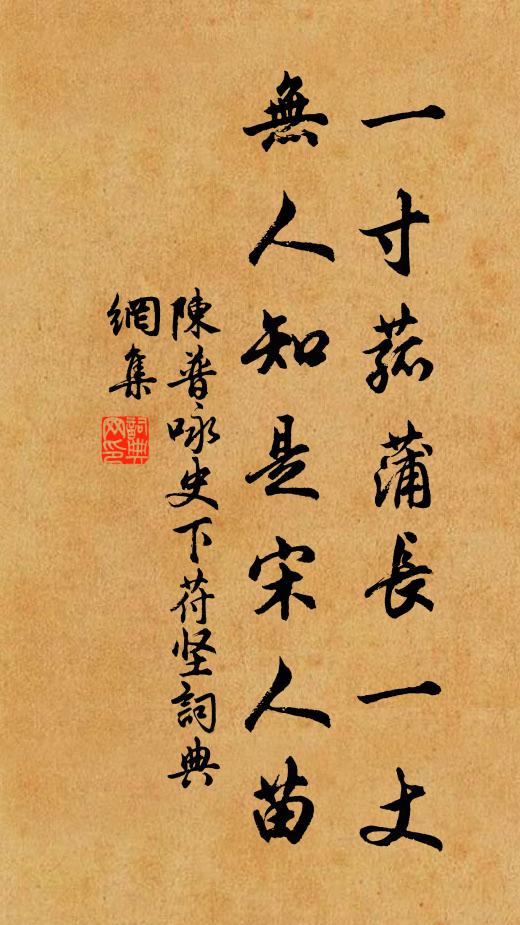 一寸菰蒲長一丈
無人知是宋人苗
陳普咏史下苻坚詞典
網集
詞典網印